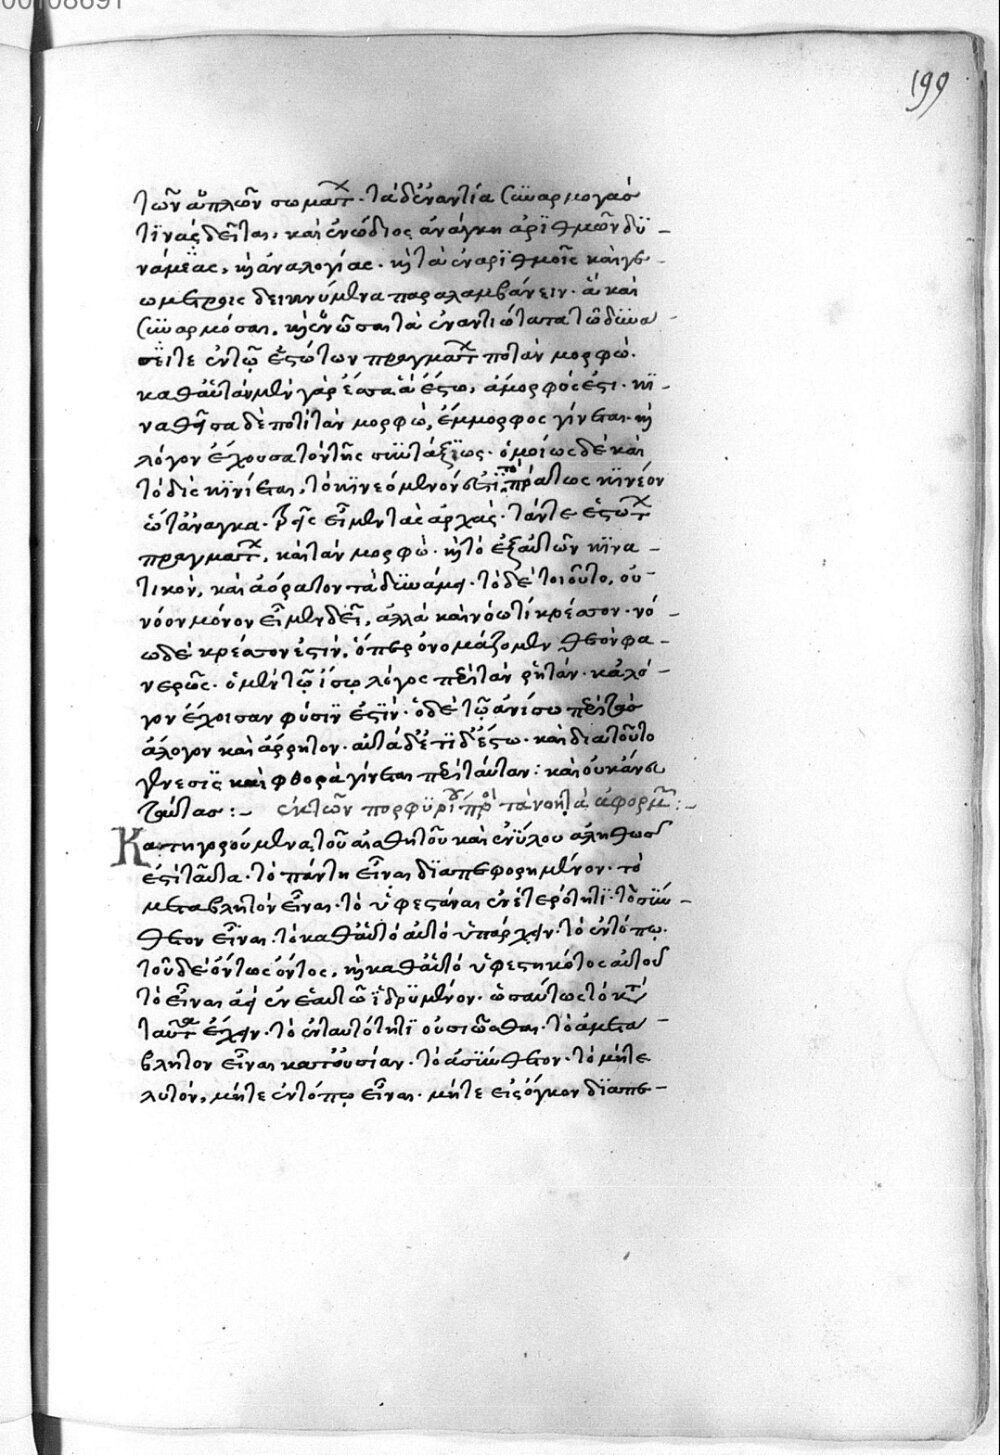 00108691
199
τῶν ἁπλῶν σωμάτ. τὰ δ' ἐναντία συναρμογᾶς
τινὰς δεῖται, καὶ ἑνώσιος ἀνάγκη ἀριθμῶν δυ-
νάμιας, κὴ ἀναλογίας. κὴ τὰ ἐν ἀριθμοῖς καὶ γε-
ωμετρίοις δεικνύμενα παραλαμβάνειν. ἃ καὶ
συναρμόσαι, κὴ ἑνῶσαι τὰ ἐναντιότατα τῶ δύνα
σεῖτε ἐν τῷ ἐστώτων πραγμάτ ποτὰν μορφώ.
καθ' αὑτὰν μὲν γὰρ ἔασα ἁ ἐστὼ, ἄμορφός ἐστι. κι-
ναθῆσα δὲ ποτὶ τὰν μορφὼ, ἔμμορφος γίνεται. κὴ
λόγον ἔχουσα τὸν τῆς συντάξιως. ὁμοίως δὲ καὶ
τὸ δι' ὃ κινέεται, τὸ κινεόμενόν ἐστι τὸ πράτως κινέον
ὥστ' ἀνάγκα. τρεῖς εἶμεν τὰς ἀρχάς. τάν τε ἐστὼ τ
πραγμάτ, καὶ τὰν μορφώ. κὴ τὸ ἐξ αὑτῶν κινα-
τικὸν, καὶ ἀόρατον τᾷ δυνάμει. τὸ δὲ τοιοῦτο, οὐ
νόον μόνον εἶμεν δεῖ, ἀλλὰ καὶ νόω τι κρέσσον. νό-
ω δὲ κρέσσον ἐστὶν, ὅπερ ὀνομάζομεν θεὸν φα-
νερῶς. ὁ μὲν τῷ ἴσῳ λόγος περὶ τὰν ῥητὰν. καὶ λό-
γον ἔχοισαν φύσιν ἐστὶν. ὁ δὲ τῷ ἀνίσω περὶ τὰν
ἄλογον καὶ ἄρρητον. αὕτα δέ ἐστι δ' ἐστω. καὶ διὰ τοῦτο
γένεσις καὶ φθορὰ γίνεται περὶ ταύταν: καὶ οὐκ ἄνευ
ταύτας:- ἐκ τῶν πορφυρίου πρὸ τὰ νοητὰ ἀφορμ:-
Κατηγορούμενα τοῦ αἰσθητοῦ καὶ ἐνύλου ἀληθῶς
ἐστὶ ταῦτα. τὸ πάντη εἶναι διαπεφορημένον. τὸ
μεταβλητὸν εἶναι. τὸ ὑφεστάναι ἐν ἑτερότητι. τὸ σύν-
θετον εἶναι. τὸ καθ' αὑτὸ αὐτὸ ὑπάρχειν. τὸ ἐν τόπῳ.
τοῦ δὲ ὄντως ὄντος, κὴ καθ' αὑτὸ ὑφεστηκότος αὐτοῦ
τὸ εἶναι ἀεὶ ἐν ἑαυτῶ ἱδρυμένον. ὡσαύτως τὸ κτ
ταὐτ ἔχειν. τὸ ἐν ταυτότητι οὐσιῶσθαι. τὸ ἀμετά-
βλητον εἶναι κατ' οὐσίαν. τὸ ἀσύνθετον. τὸ μήτε
λυτὸν, μήτε ἐν τόπῳ εἶναι. μήτε εἰς ὄγκον διαπε-